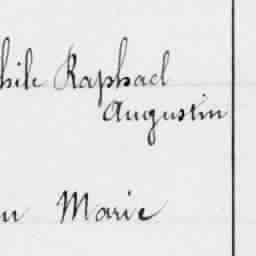 hile Raphael
Augustin
n Marie